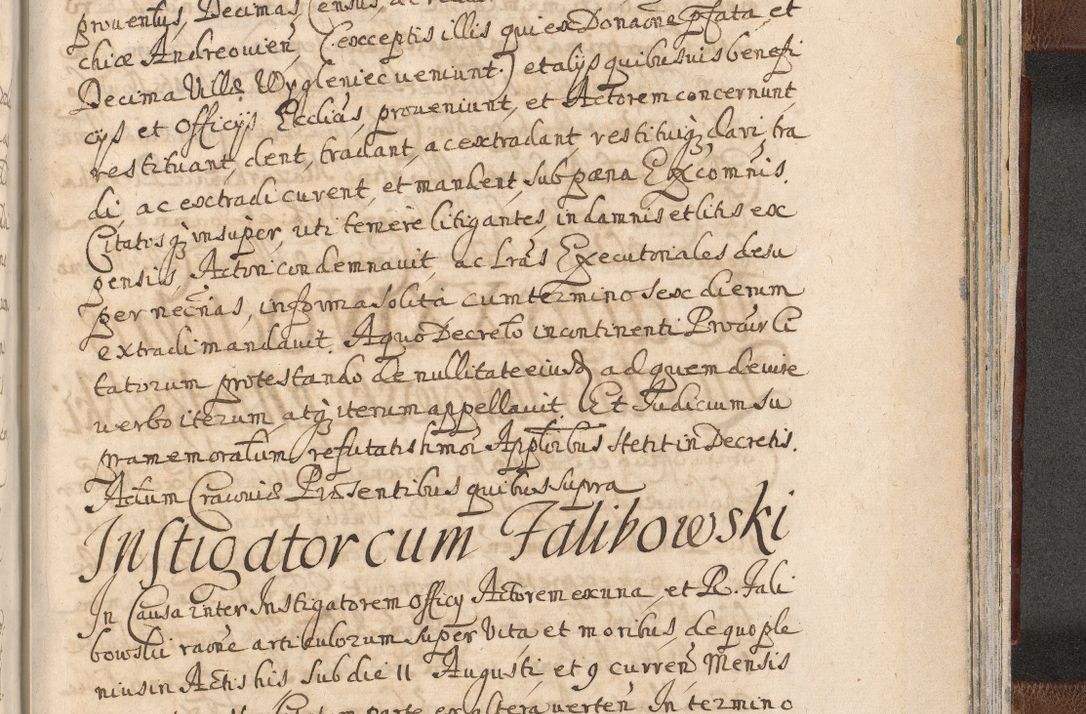 proventus, Decimas, Census, ac
chiæ Andreovien̄, (exceptis illis qui ex Donaōne p̄fata, et
Decima Villæ Wygleniec veniunt.) et alys quibusvis benefi
cys et Officijs Eccliās proveniunt, et Actorem concernunt
restituant, dent, tradant, ac extradant, restituiq̨, dari, tra
di, ac extradi curent, et mandent, sub pœna Excomnis.
Citatosq̨ insuper, uti temere litigantes, in damnis et litis ex
pensis, Actori condemnavit, ac Lrās Executoriales desu
per necrīas, in forma solita cum termino sex dierum
extradi mandavit. A quo Decreto incontinenti Procur Ci
tatorum protestando de nullitate eiusd̄ ad quem de iure
verbo iterum atq̨ iterum appellavit. Et Judicium su
pramemoratum, refutatis hmōi Appl̄oibus stetit in Decretis.
Actum Cracoviæ Præsentibus quibus supra
Instigator cum Falibowski
In Causa inter Instigatorem officy Actorem ex una, et R. Fali
bowski raōne articulorum super Vita et moribus, de quo ple
nius in Actis his sub die 11 Augusti, et 9 curren̄ Mensis
parte ex altera verten̄ In termino